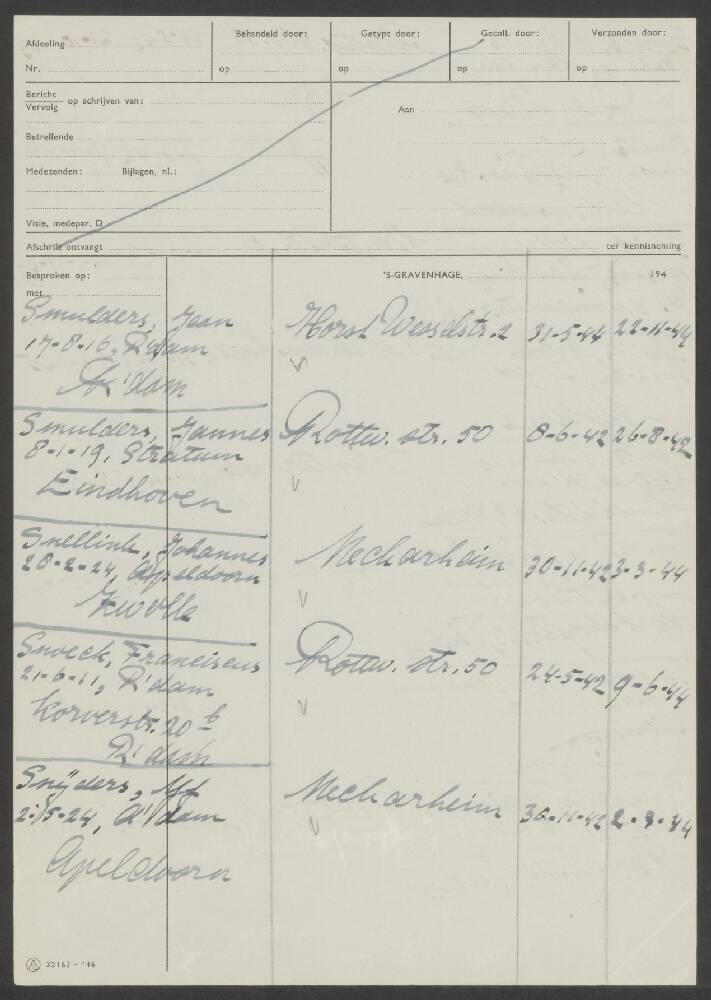 Afdeeling
Behandeld door:
Getypt door:
Gecoll. door:
Verzonden door:
Nr.
op
op
op
op
Bericht
Vervolg
op schrijven van:
Aan
Betreffende
Medezenden: Bijlagen, nl.:
Visie, medepar. D
Afschrift ontvangt
ter kennisneming
Besproken op:
'S-GRAVENHAGE, 194
met
Smulders, Jean Horst Wesselstr. 2 31-5-44 22-11-44
17-8-16, R'dam
A'dam
Smulders, Jannes Rottw. str. 50 8-6-42 26-8-42
8-1-19, Stratum
Eindhoven
Snellink, Johannes Mecharheim 30-11-42 3-3-44
28-2-24, Apeldoorn
Zwolle
Snoeck, Franciscus Rottw. str. 50 24-5-42 9-6-44
21-6-11, R'dam
Korverstr. 20 b
R'dam
Snÿders, Mecharheim 30-11-42 2-3-44
2-5-24, A'dam
Apeldoorn
32163 - '46